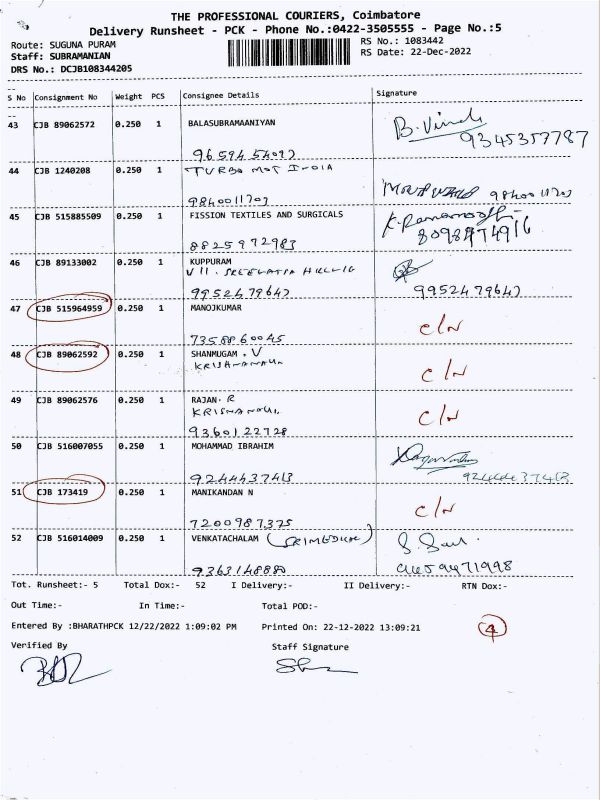 THE PROFESSIONAL COURIERS, Coimbatore
Delivery Runsheet - PCK - Phone No.:0422-3505555 - Page No.:5
Route: SUGUNA PURAM RS No.: 1083442
Staff: SUBRAMANIAN RS Date: 22-Dec-2022
DRS No.: DCJB108344205
S No Consignment No Weight PCS Consignee Details Signature
43 CJB 89062572 0.250 1 BALASUBRAMAANIYAN B. Vinch
9345357787
44 CJB 1240208 0.250 1 TURBO MOT INDIA
9840011703 9840011703
45 CJB 515885509 0.250 1 FISSION TEXTILES AND SURGICALS
8825972983
46 CJB 89133002 0.250 1 KUPPURAM
VII.
9952479647 9952479647
47 CJB 515964959 0.250 1 MANOJKUMAR C/N
7358860045
48 CJB 89062592 0.250 1 SHANMUGAM . V C/N
49 CJB 89062576 0.250 1 RAJAN. R C/N
9360122728
50 CJB 516007055 0.250 1 MOHAMMAD IBRAHIM
9244437413 9244437413
51 CJB 173419 0.250 1 MANIKANDAN N C/N
7200987375
52 CJB 516014009 0.250 1 VENKATACHALAM (SRIMEDICAL)
9363148880
Tot. Runsheet:- 5 Total Dox:- 52 I Delivery:- II Delivery:- RTN Dox:-
Out Time:- In Time:- Total POD:-
Entered By :BHARATHPCK 12/22/2022 1:09:02 PM Printed On: 22-12-2022 13:09:21 4
Verified By Staff Signature